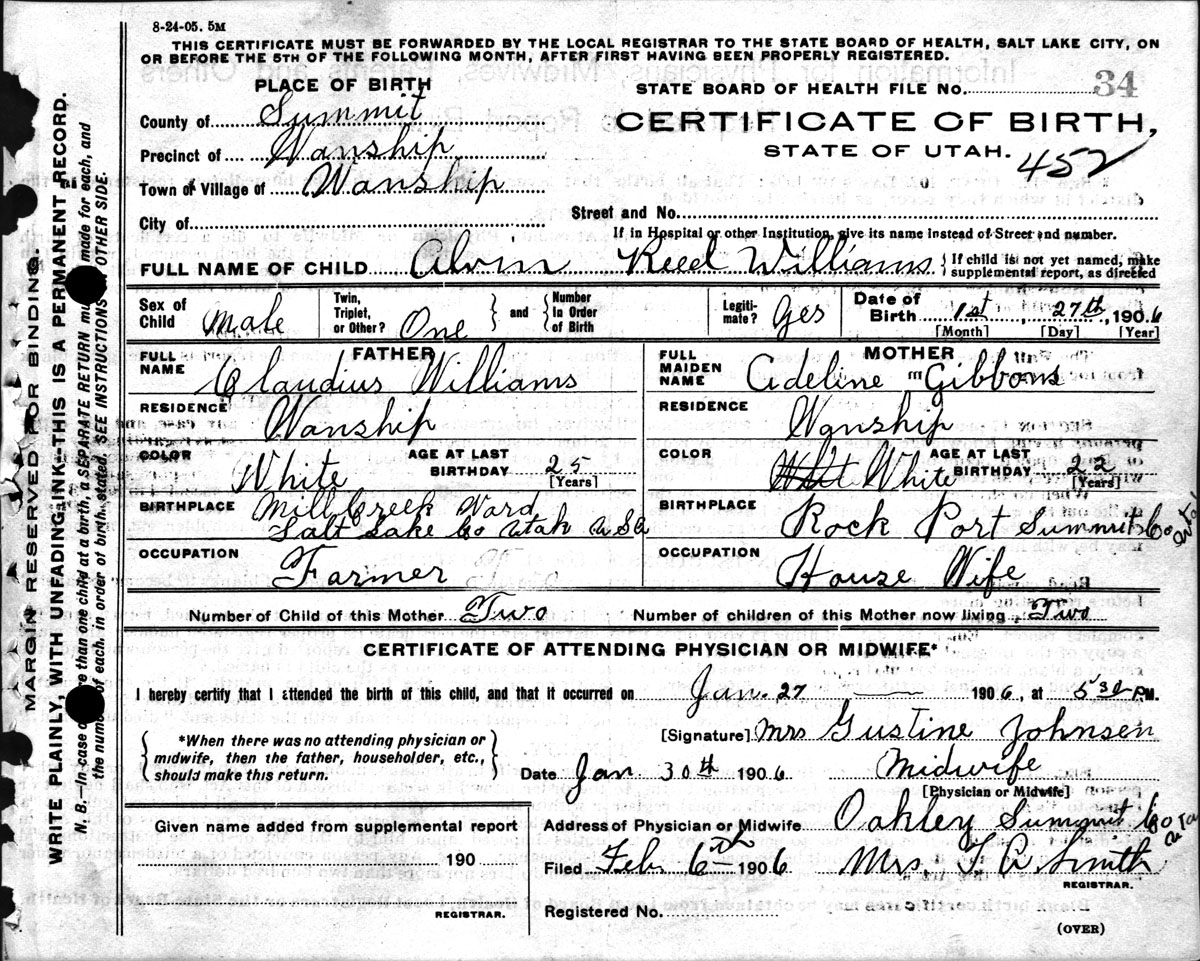 8-24-05. 5M
THIS CERTIFICATE MUST BE FORWARDED BY THE LOCAL REGISTRAR TO THE STATE BOARD OF HEALTH, SALT LAKE CITY, ON
OR BEFORE THE 5TH OF THE FOLLOWING MONTH, AFTER FIRST HAVING BEEN PROPERLY REGISTERED.
PLACE OF BIRTH
County of Summit
Precinct of Wanship
Town or Village of Wanship
City of
STATE BOARD OF HEALTH FILE No. 34
CERTIFICATE OF BIRTH,
STATE OF UTAH. 452
Street and No.
If in Hospital or other Institution, give its name instead of Street and number.
FULL NAME OF CHILD Alvin Reed Williams { If child is not yet named, make
supplemental report, as directed
Sex of Child Male
Twin, Triplet, or Other? One } and { Number In Order of Birth
Legitimate? Yes
Date of Birth 1st, 27th, 1906
[Month] [Day] [Year]
FATHER
FULL NAME Claudius Williams
RESIDENCE Wanship
COLOR White AGE AT LAST BIRTHDAY 25
[Years]
BIRTHPLACE Mill Creek Ward
Salt Lake Co Utah U.S.A
OCCUPATION Farmer
MOTHER
FULL MAIDEN NAME Adeline Gibbons
RESIDENCE Wanship
COLOR White AGE AT LAST BIRTHDAY 22
[Years]
BIRTHPLACE Rock Port Summit Co
OCCUPATION House Wife
Number of Child of this Mother Two Number of children of this Mother now living Two
CERTIFICATE OF ATTENDING PHYSICIAN OR MIDWIFE*
I hereby certify that I attended the birth of this child, and that it occurred on Jan. 27 1906, at 5 30 P.M.
{ *When there was no attending physician or
midwife, then the father, householder, etc.,
should make this return. }
[Signature] Mrs Gustine Johnsen
Date Jan. 30th 1906 Midwife
[Physician or Midwife]
Given name added from supplemental report
190
REGISTRAR.
Address of Physician or Midwife Oakley Summit Co Utah
Filed Feb. 6th 1906 Mrs. T A Smith
REGISTRAR.
Registered No.
(OVER)
MARGIN RESERVED FOR BINDING.
WRITE PLAINLY, WITH UNFADING INK—THIS IS A PERMANENT RECORD.
N. B.—In case of more than one child at a birth, a SEPARATE RETURN must be made for each, and
the number of each, in order of birth, stated. SEE INSTRUCTIONS ON OTHER SIDE.